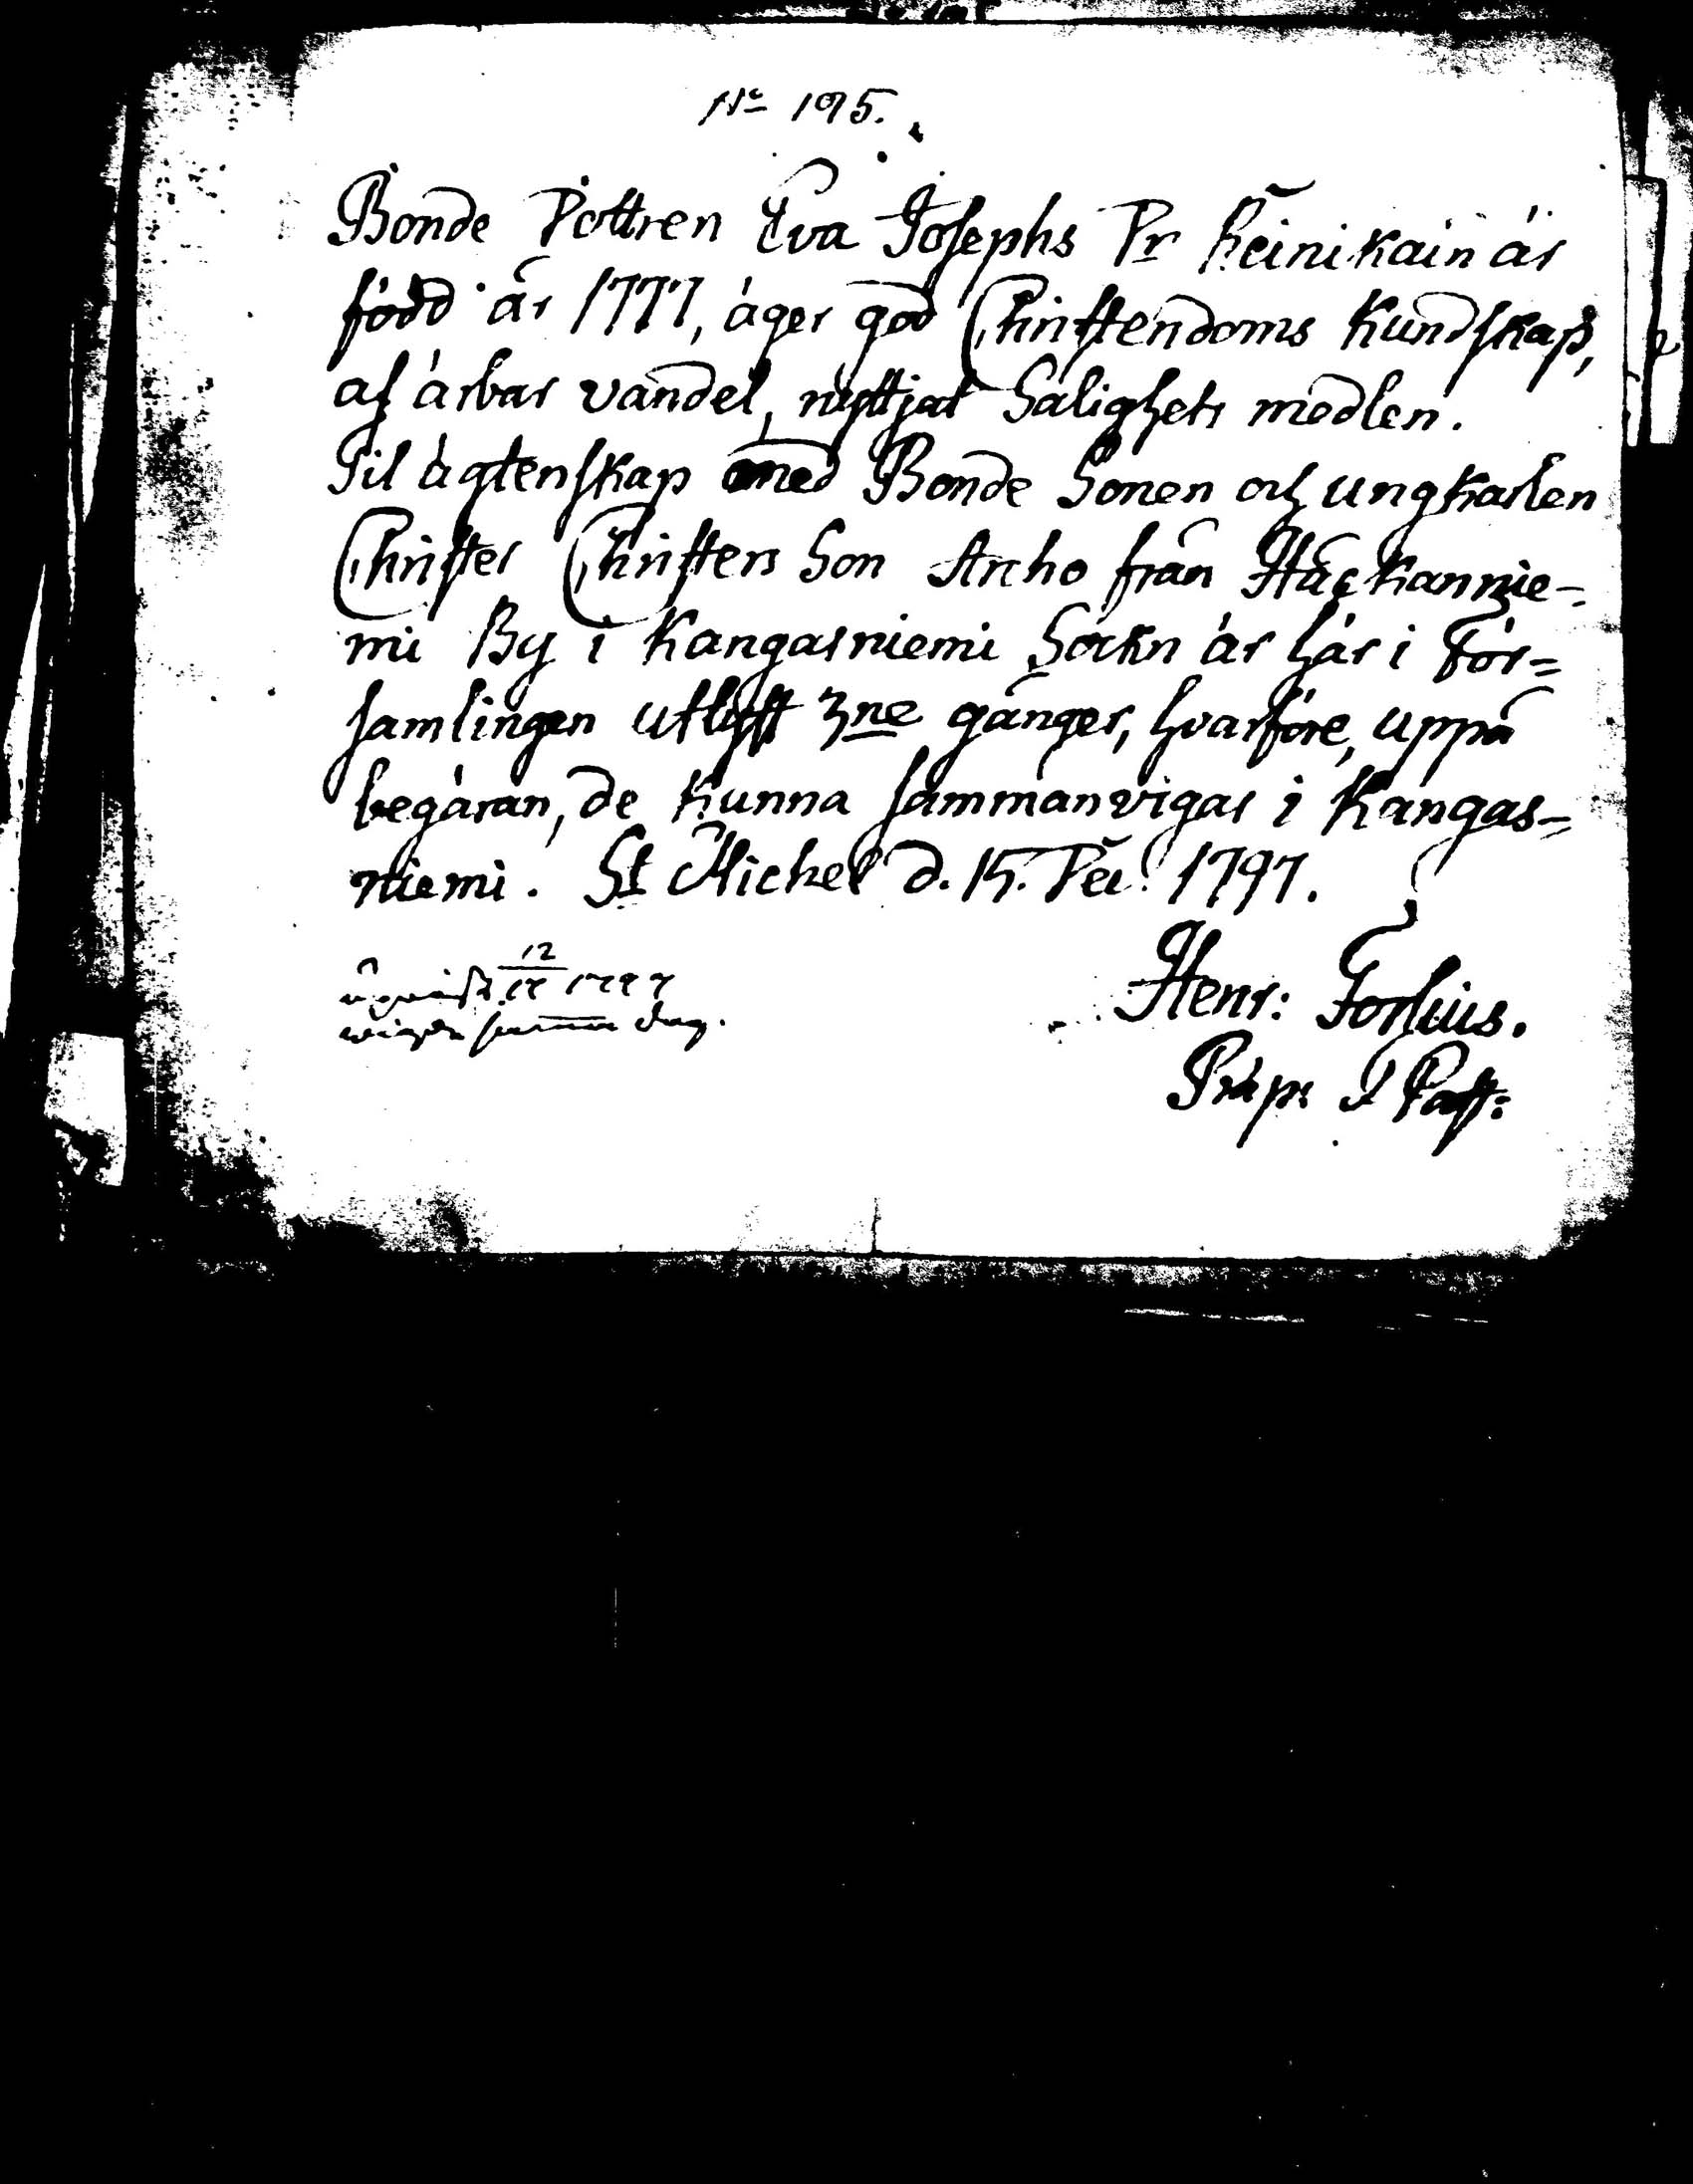 No 195.
Bonde Dottren Eva Josephs Dr Heinikain är
född år 1777, äger god Christendoms Kundskap,
af ärbar vandel, nyttjat Salighets medlen.
Til ägtenskap med Bonde Sonen och ungkarlen
Christer Christers Son Archo från Hackannie-
mi By i Kangasniemi Sockn är här i För=
samlingen utlyst 3ne gånger, hvarföre, uppå
begäran, de kunna sammanvigas i Kangas=
niemi. St Michel d. 15. Dec. 1797.
12 1797
samma dag.
Henr: Forlius.
Præp: & Past: